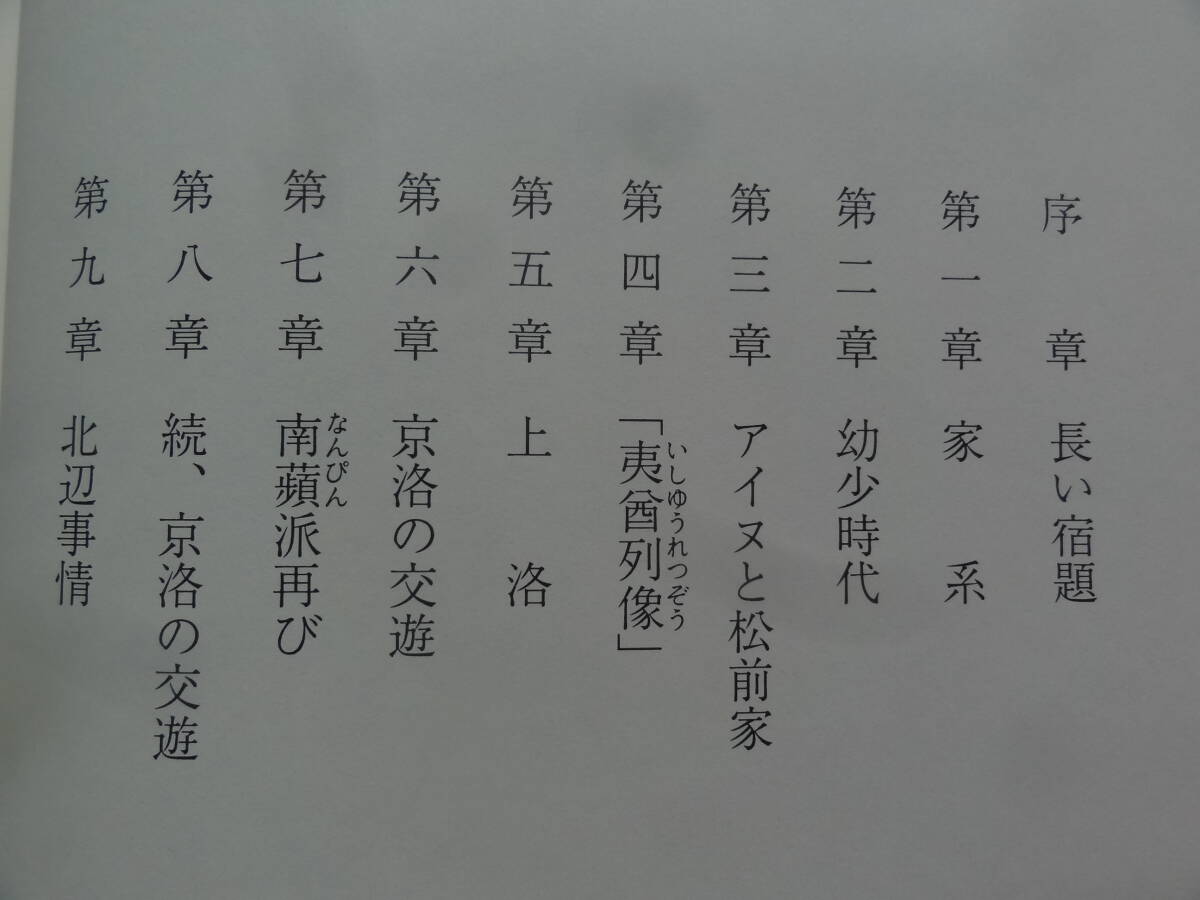 序章 長い宿題
第一章 家系
第二章 幼少時代
第三章 アイヌと松前家
第四章 「夷酋列像」
いしゆうれつぞう
第五章 上洛
第六章 京洛の交遊
第七章 南蘋派再び
なんぴん
第八章 続、京洛の交遊
第九章 北辺事情